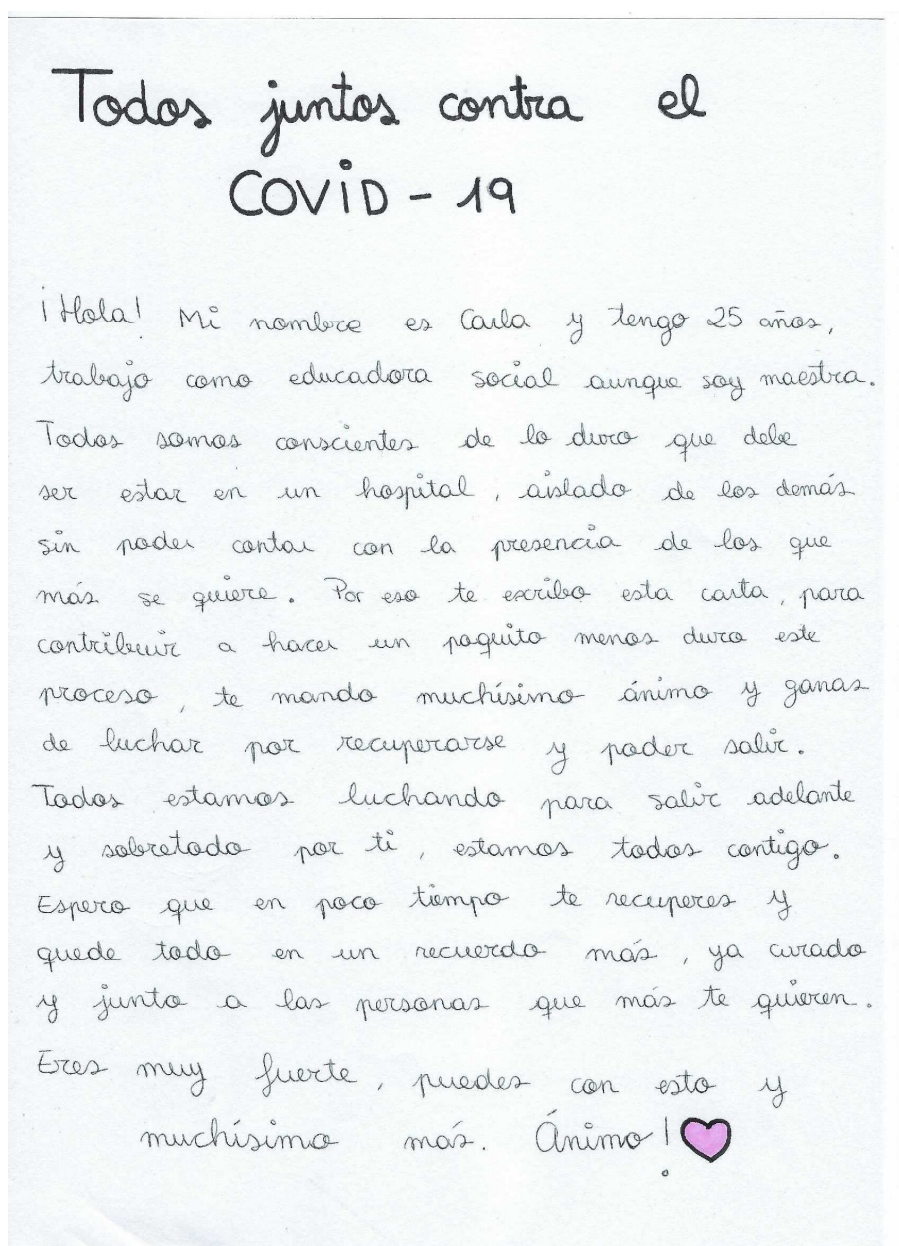 Todos juntos contra el
COVID - 19
¡Hola! Mi nombre es Carla y tengo 25 años,
trabajo como educadora social aunque soy maestra.
Todos somos conscientes de lo duro que debe
ser estar en un hospital, aislado de los demás
sin poder contar con la presencia de los que
más se quiere. Por eso te escribo esta carta, para
contribuir a hacer un poquito menos duro este
proceso, te mando muchísimo ánimo y ganas
de luchar por recuperarse y poder salir.
Todos estamos luchando para salir adelante
y sobretodo por ti, estamos todos contigo.
Espero que en poco tiempo te recuperes y
quede todo en un recuerdo más, ya curado
y junto a las personas que más te quieren.
Eres muy fuerte, puedes con esto y
muchísimo más. Ánimo!